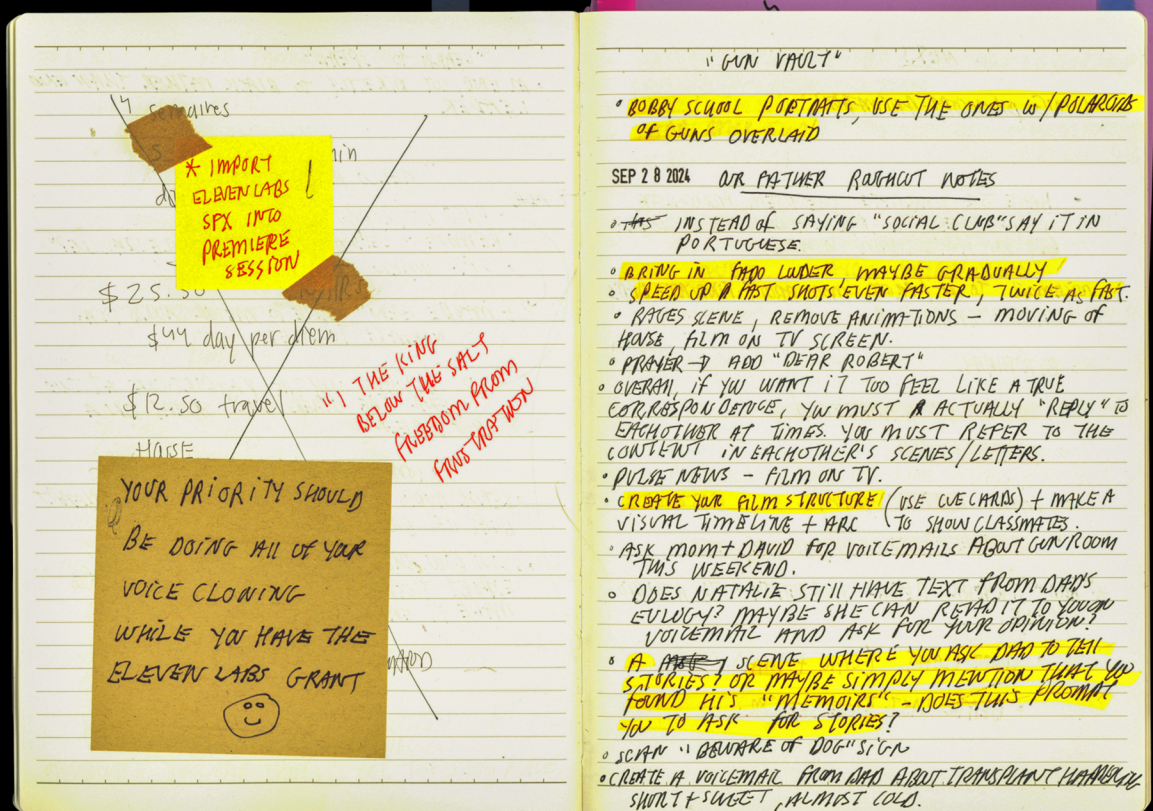 14 semaines
* IMPORT
ELEVEN LABS
SFX INTO
PREMIERE
SESSION
min
$25.50
$44 day per diem
$12.50 travel
"I THE KING
BELOW THE SALT
FREEDOM FROM
FRUSTRATION
YOUR PRIORITY SHOULD
BE DOING ALL OF YOUR
VOICE CLONING
WHILE YOU HAVE THE
ELEVEN LABS GRANT
"GUN VAULT"
• BOBBY SCHOOL PORTRAITS, USE THE ONES W/POLAROIDS
OF GUNS OVERLAID
SEP 28 2024 OUR FATHER ROUGHCUT NOTES
• INSTEAD OF SAYING "SOCIAL CLUB" SAY IT IN
PORTUGUESE.
• BRING IN FADO LOUDER, MAYBE GRADUALLY
• SPEED UP FAST SHOTS EVEN FASTER, TWICE AS FAST.
• RAGES SCENE, REMOVE ANIMATIONS – MOVING OF
HOUSE, FILM ON TV SCREEN.
• PRAYER → ADD "DEAR ROBERT"
• OVERALL, IF YOU WANT IT TOO FEEL LIKE A TRUE
CORRESPONDENCE, YOU MUST ACTUALLY "REPLY" TO
EACHOTHER AT TIMES. YOU MUST REFER TO THE
CONTENT IN EACHOTHER'S SCENES/LETTERS.
• PULSE NEWS – FILM ON TV.
• CREATE YOUR FILM STRUCTURE (USE CUE CARDS) + MAKE A
VISUAL TIMELINE + ARC TO SHOW CLASSMATES.
• ASK MOM + DAVID FOR VOICEMAILS ABOUT GUN ROOM
THIS WEEKEND.
• DOES NATALIE STILL HAVE TEXT FROM DAD'S
EULOGY? MAYBE SHE CAN READ IT TO YOU ON
VOICEMAIL AND ASK FOR YOUR OPINION?
• A SCENE WHERE YOU ASK DAD TO TELL
STORIES? OR MAYBE SIMPLY MENTION THAT YOU
FOUND HIS "MEMOIRS" – DOES THIS PROMPT
YOU TO ASK FOR STORIES?
• SCAN "BEWARE OF DOG" SIGN
• CREATE A VOICEMAIL FROM DAD ABOUT TRANSPLANT HAPPENING
SHORT + SWEET, ALMOST COLD.